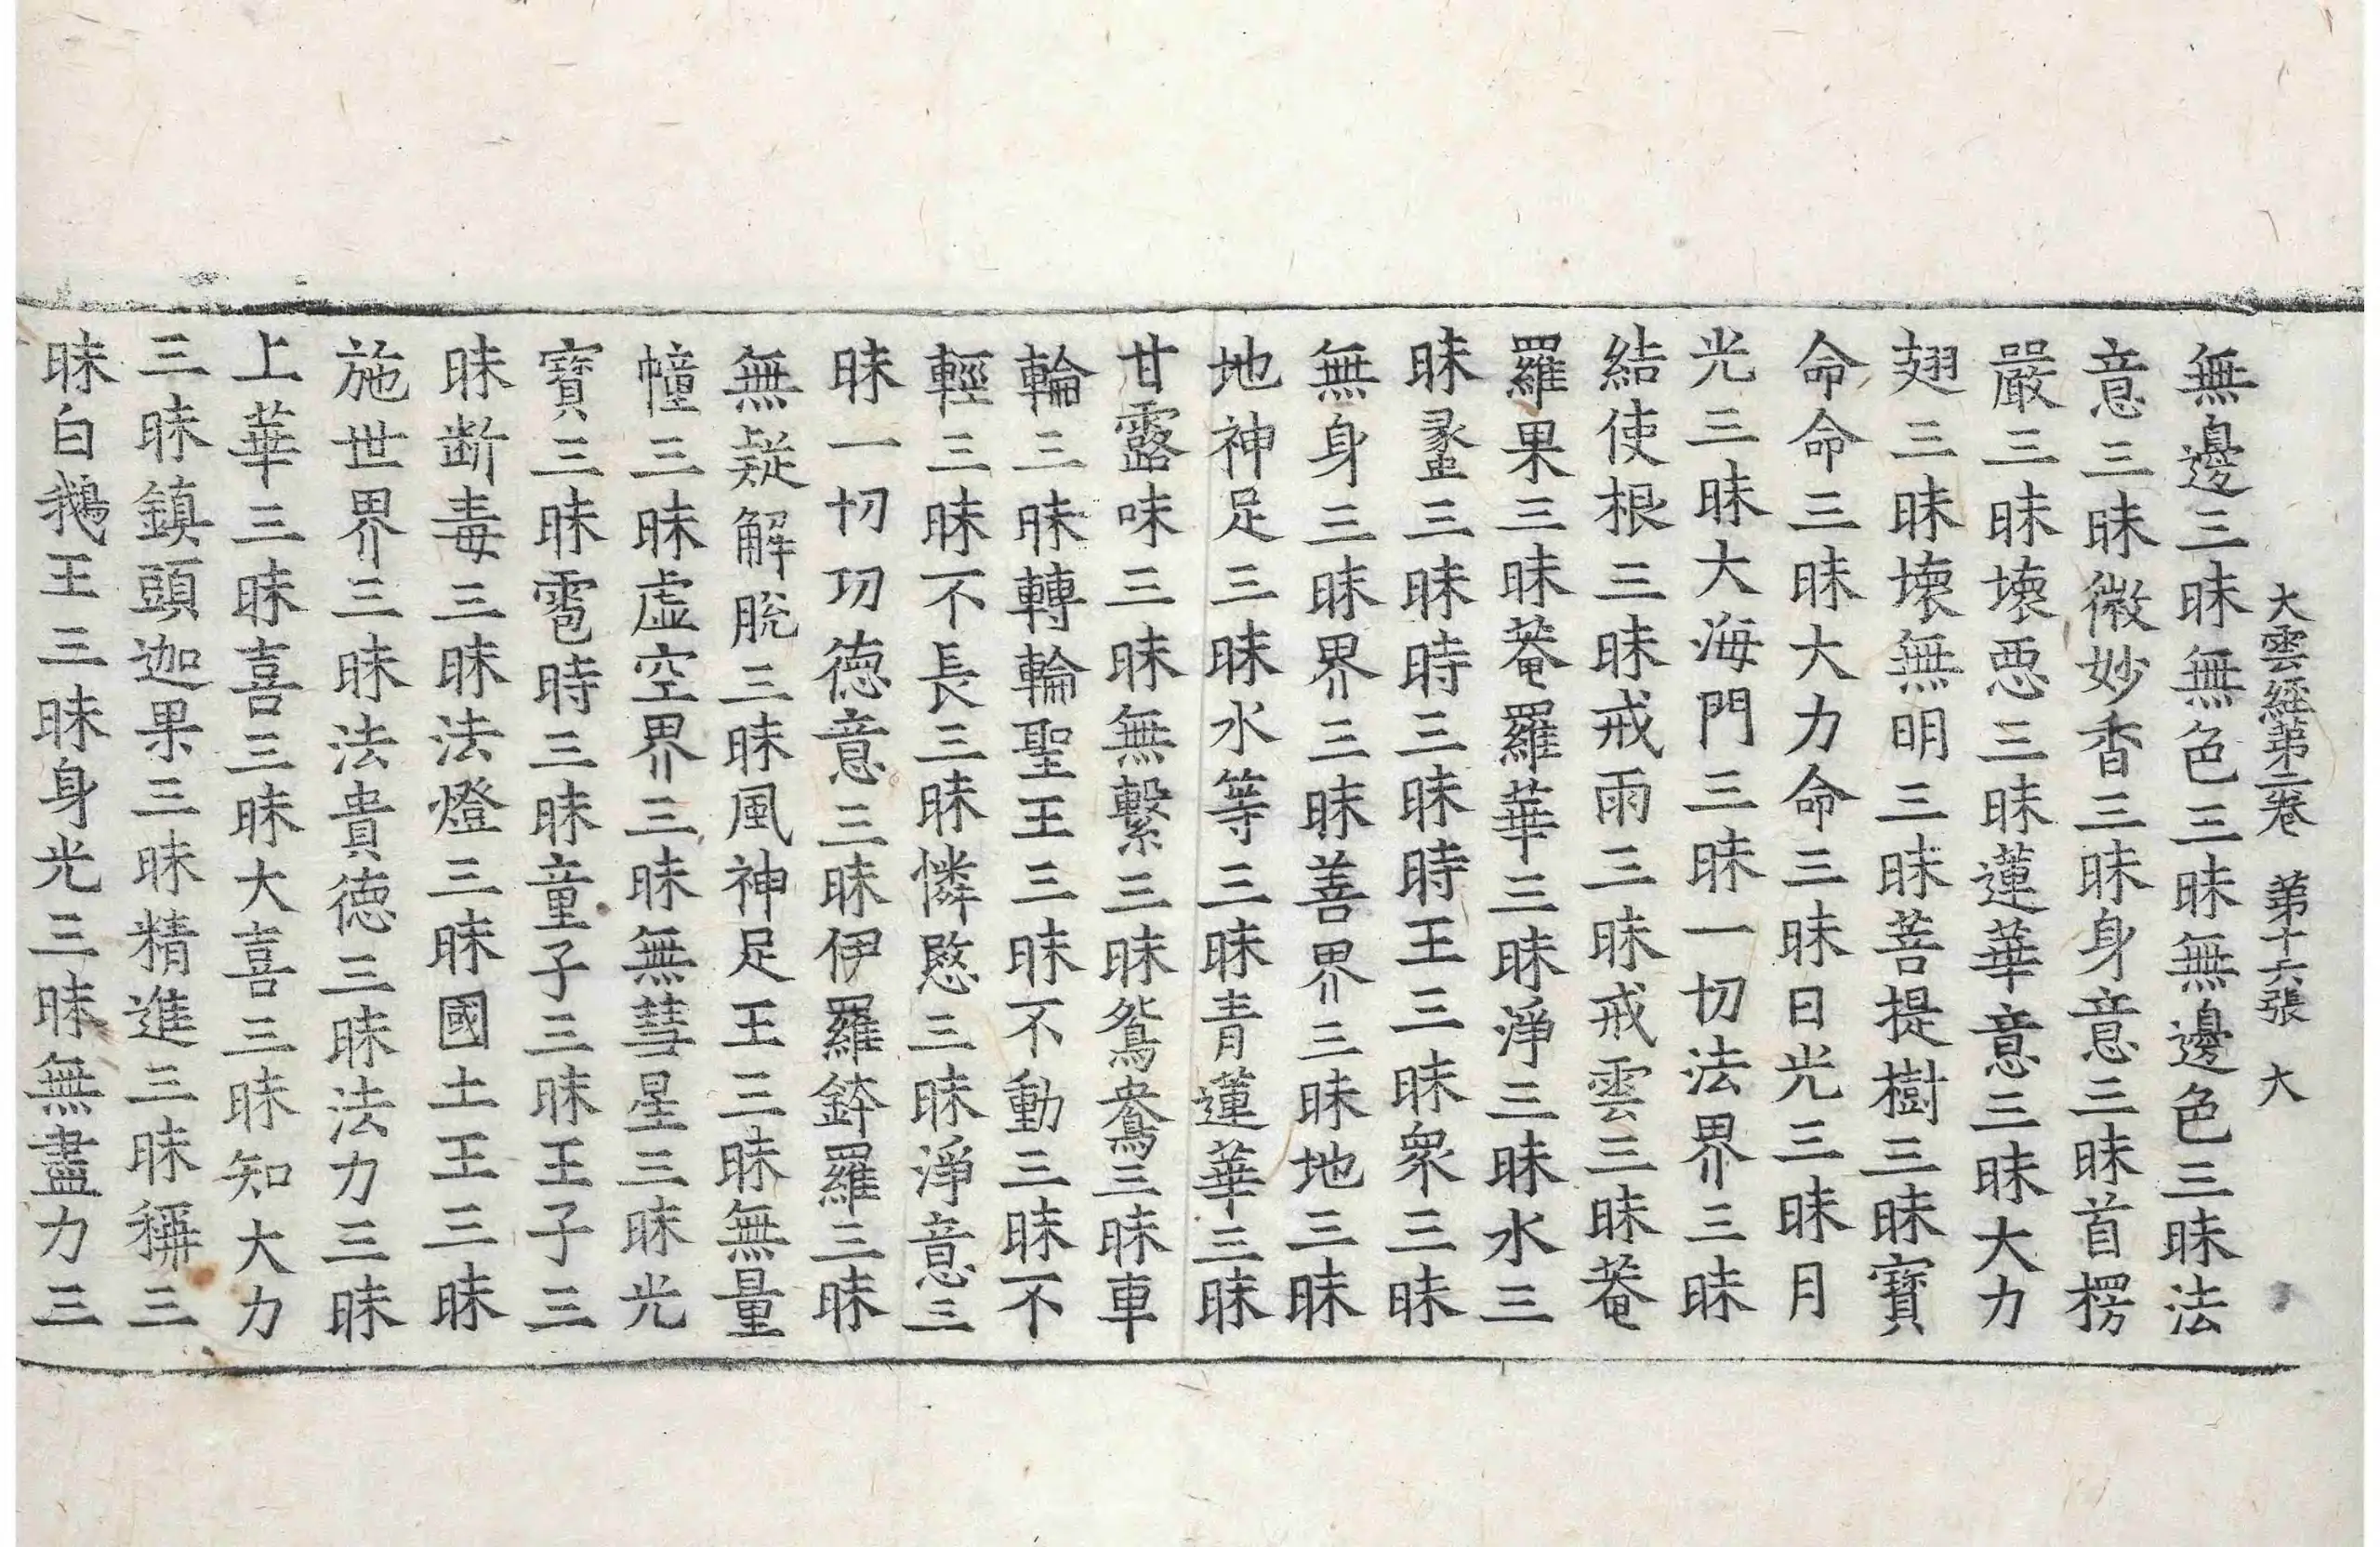 大雲經第二卷 第十六張 大
無邊三昧無色三昧無邊色三昧法
意三昧微妙香三昧身意三昧首楞
嚴三昧壞惡三昧蓮華意三昧大力
翅三昧壞無明三昧菩提樹三昧寶
命命三昧大力命三昧日光三昧月
光三昧大海門三昧一切法界三昧
結使根三昧戒雨三昧戒雲三昧菴
羅果三昧菴羅華三昧淨三昧水三
昧㲉三昧時三昧時王三昧衆三昧
無身三昧界三昧善界三昧地三昧
地神足三昧水等三昧青蓮華三昧
甘露味三昧無繫三昧鴛鴦三昧車
輪三昧轉輪聖王三昧不動三昧不
輕三昧不長三昧憐愍三昧淨意三
昧一切功德意三昧伊羅鉢羅三昧
無疑解脫三昧風神足王三昧無量
幢三昧虛空界三昧無彗星三昧光
寶三昧雹時三昧童子三昧王子三
昧断毒三昧法燈三昧國土王三昧
施世界三昧法貴德三昧法力三昧
上華三昧喜三昧大喜三昧知大力
三昧鎮頭迦果三昧精進三昧稱三
昧白鵝王三昧身光三昧無盡力三